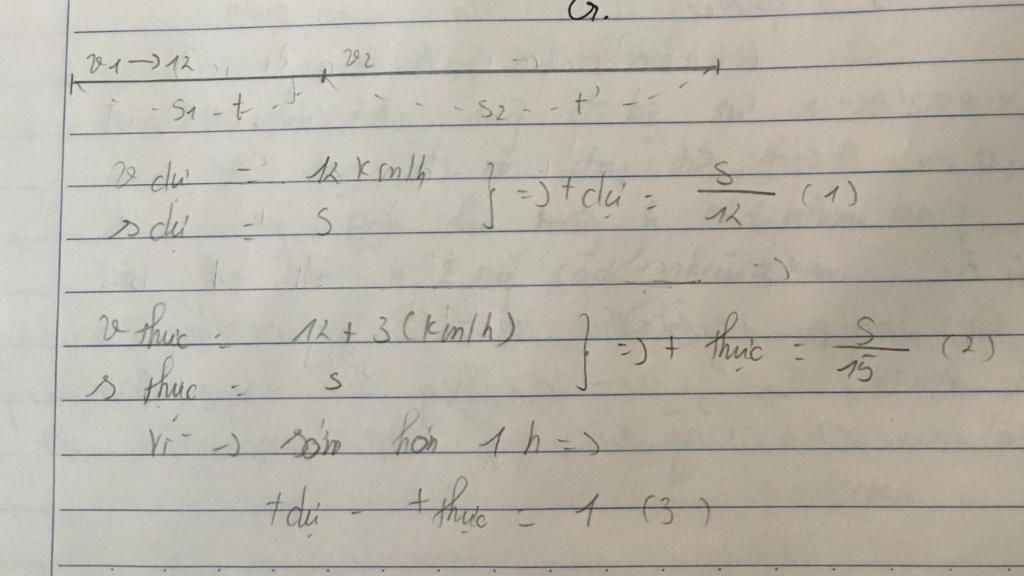 G.
v1 → 12 v2
s1 - t s2 - t'
v dự = 12 km/h
s dự = S } => t dự = S/12 (1)
=>
v thực = 12 + 3 (km/h)
s thực = s } => t thực = S/15 (2)
Vì -> sớm hơn 1 h =>
t dự - t thực = 1 (3)